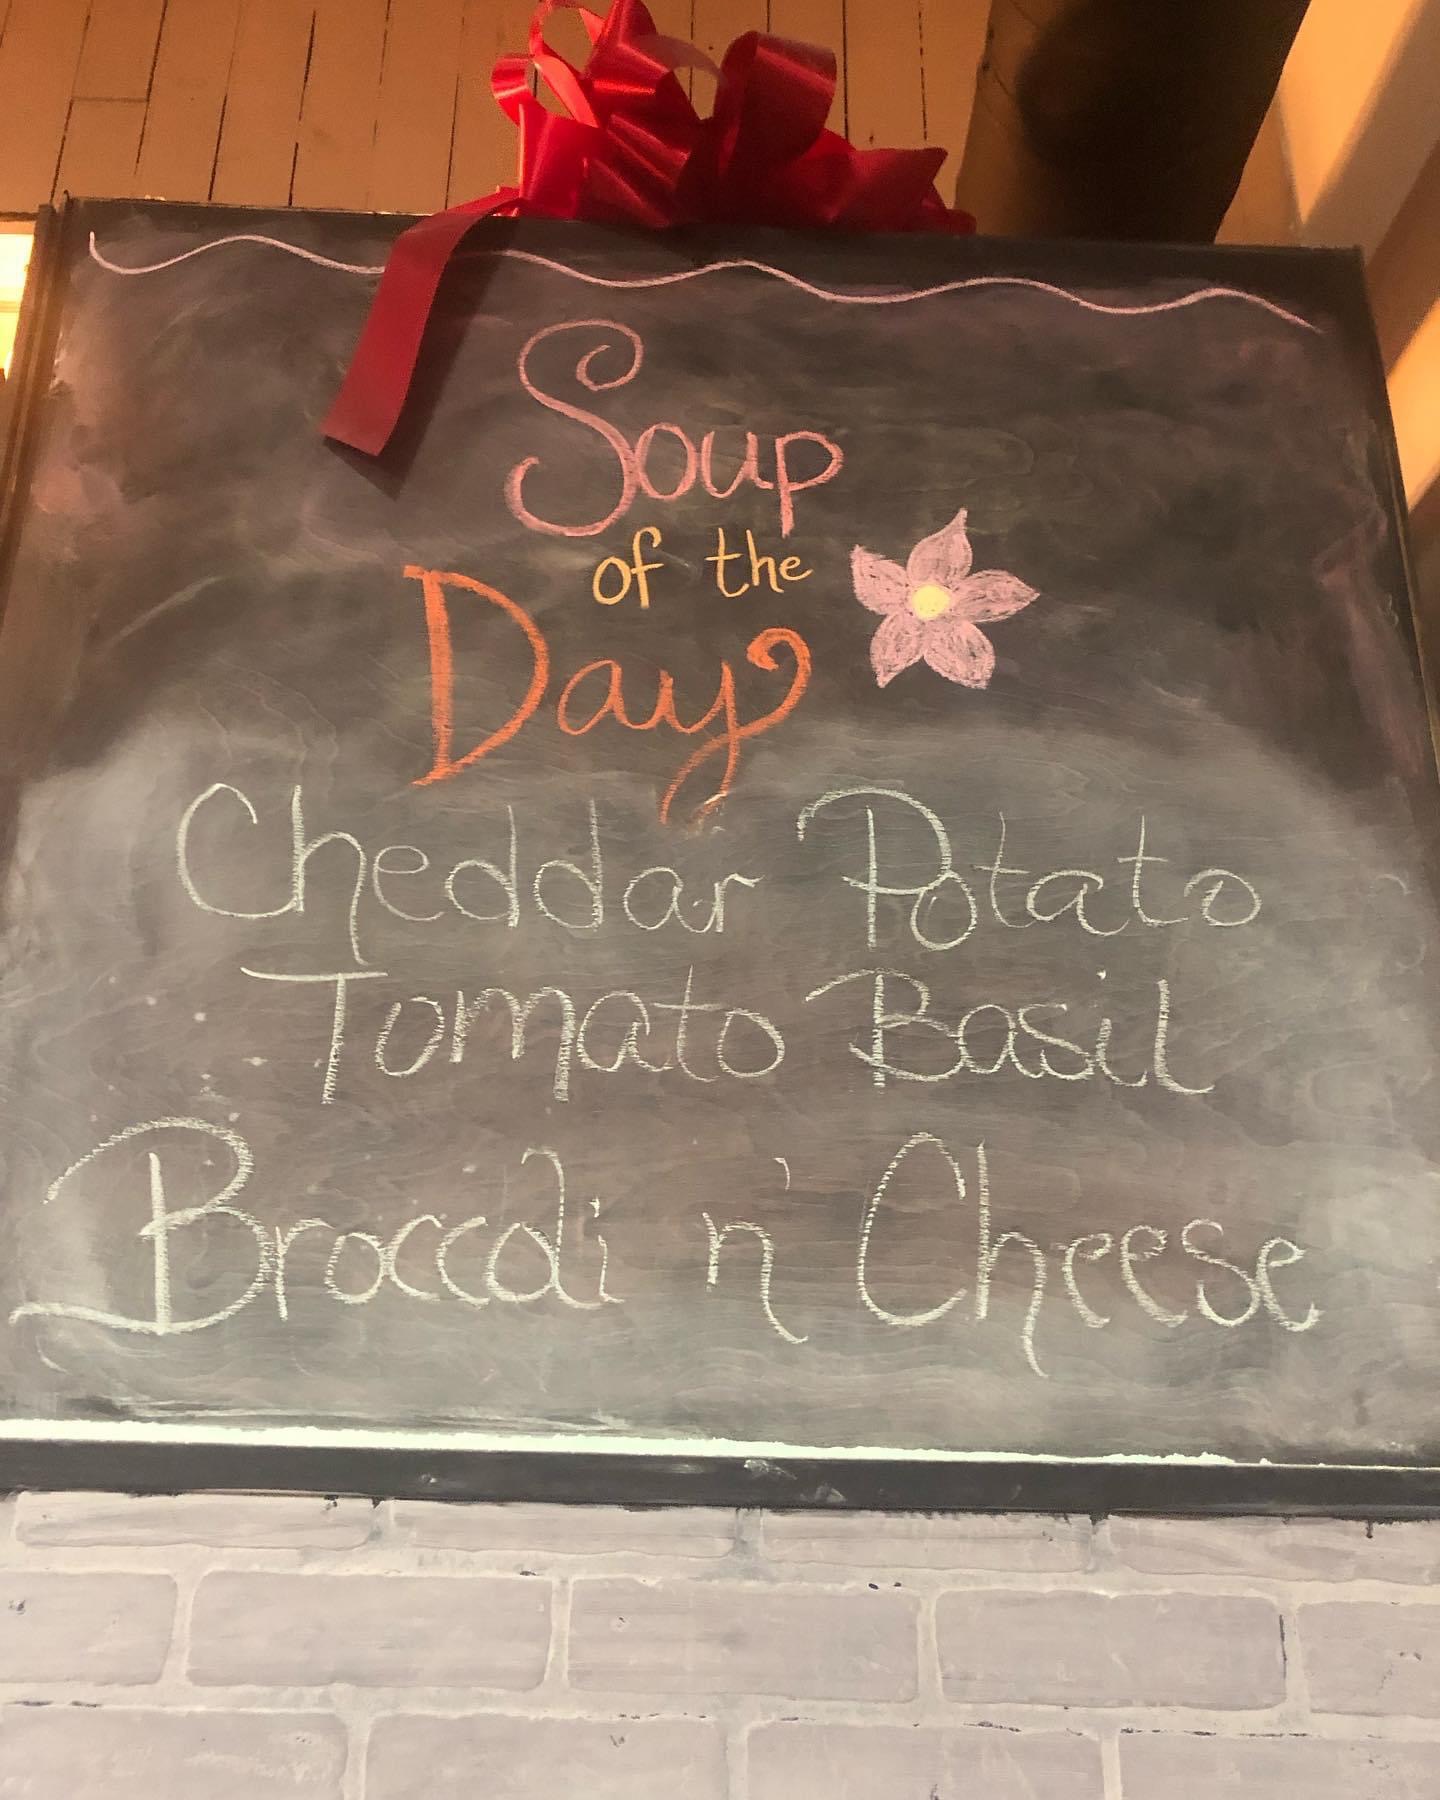 Soup
of the
Day
Cheddar Potato
Tomato Basil
Broccoli n' Cheese